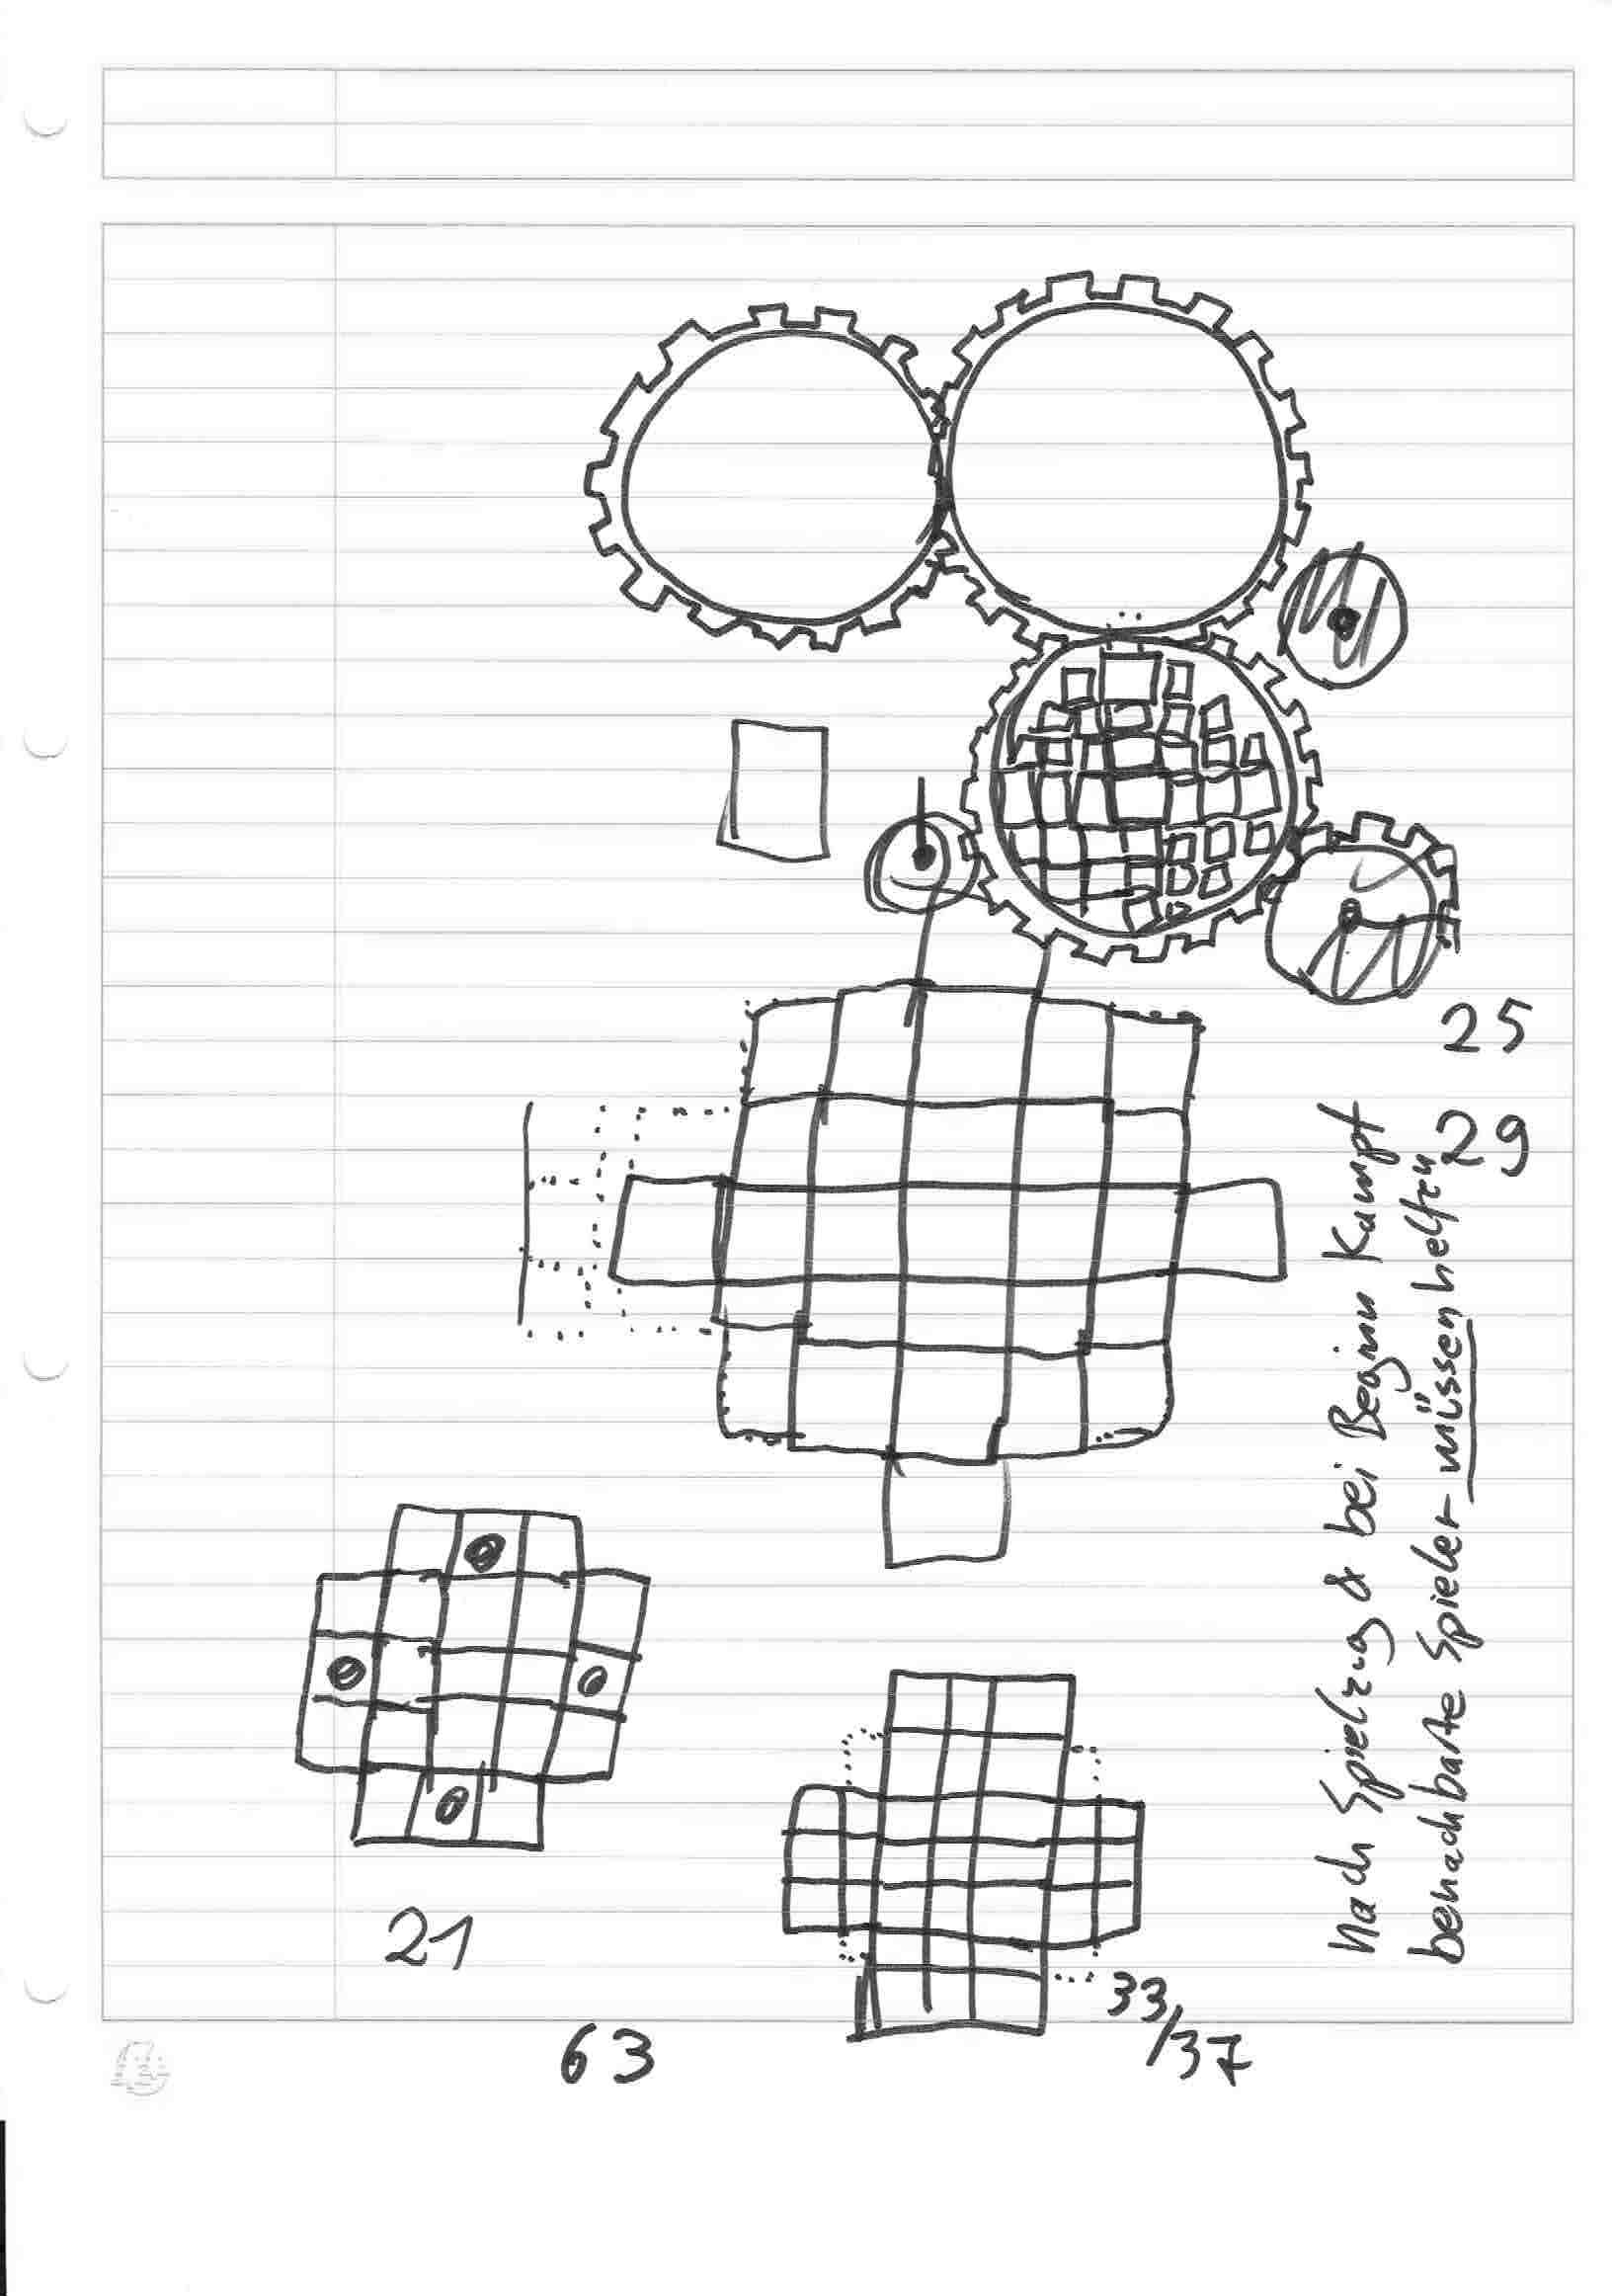 25
29
Nach Spielzug & bei Beginn Kampf
benachbarte Spieler müssen helfen
21
33
/37
63